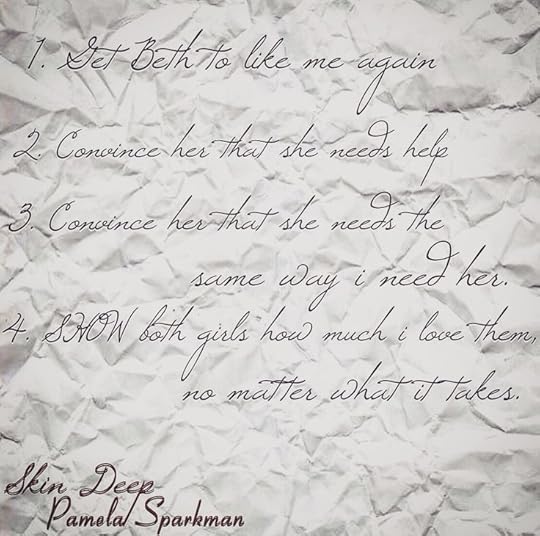 1. Get Beth to like me again
2. Convince her that she needs help
3. Convince her that she needs the
same way i need her.
4. SHOW both girls how much i love them,
no matter what it takes.
Skin Deep
Pamela Sparkman